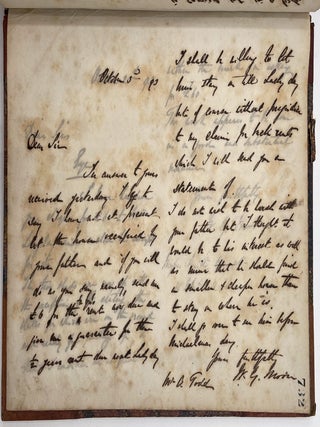 October 3ᵈ 1893
Dear Sir
In answer to yours
received yesterday. I beg to
say I have not at present
let the house occupied by
your father and if you will
do as you say namely, send me
£ 6 for the rent now due and
give me a guarantee for the
te years rent due next Lady day
I shall be willing to let
him stay on till Lady day
but of course without prejudice
to my claim for back rents
which I will send you a
statement of.
I do not wish to be hard with
your father but I thought it
would be to his interest as well
as mine that he should find
a smaller & cheaper house than
to stay on where he is,
I shall go over to see him before
Michaelmas day
Yours faithfully
Mr A. Todd
732